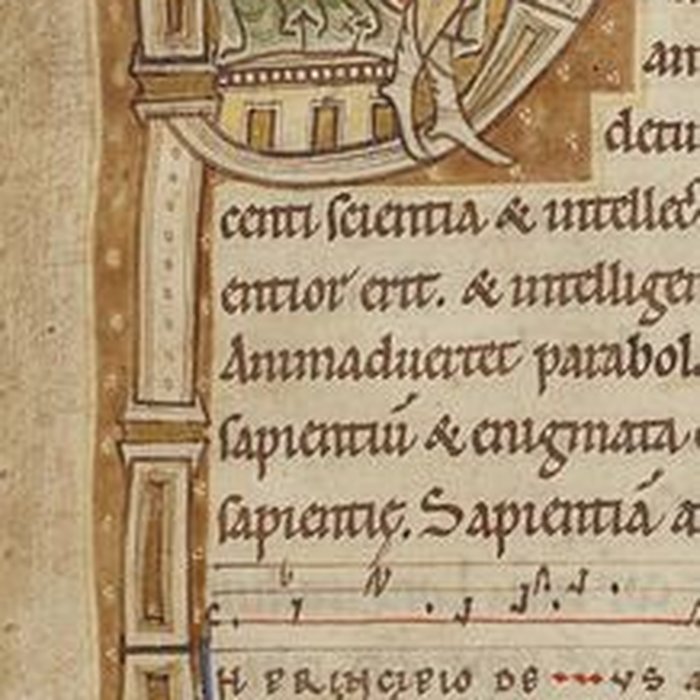 an
detu
centi scientia & intellec
entior erit. & intelliger
Animaduertet parabol
sapientiū & enigmata
sapientię. Sapientiā a
N PRINCIPIO DE US